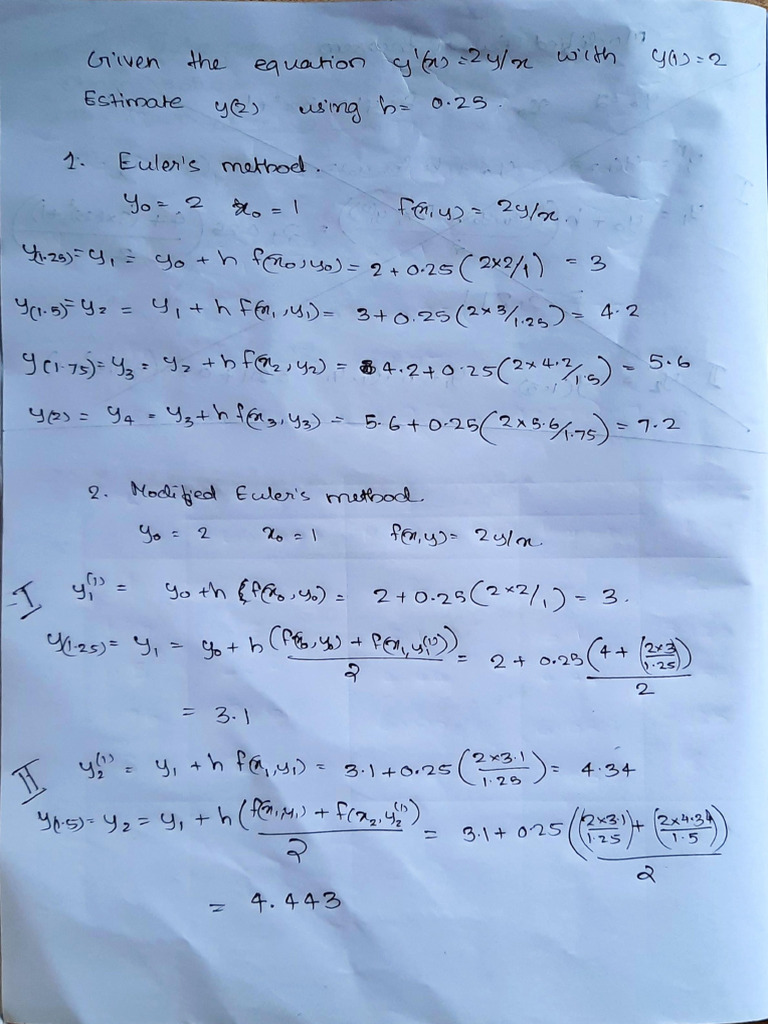 Given the equation y'(x) = 2y/x with y(1) = 2
Estimate y(2) using h = 0.25.
1. Euler's method.
y₀ = 2 x₀ = 1 f(x,y) = 2y/x.
y(1.25) = y₁ = y₀ + h f(x₀,y₀) = 2 + 0.25(2×2/1) = 3
y(1.5) = y₂ = y₁ + h f(x₁,y₁) = 3 + 0.25(2×3/1.25) = 4.2
y(1.75) = y₃ = y₂ + h f(x₂,y₂) = 4.2 + 0.25(2×4.2/1.5) = 5.6
y(2) = y₄ = y₃ + h f(x₃,y₃) = 5.6 + 0.25(2×5.6/1.75) = 7.2
2. Modified Euler's method.
y₀ = 2 x₀ = 1 f(x,y) = 2y/x.
I y₁⁽¹⁾ = y₀ + h f(x₀,y₀) = 2 + 0.25(2×2/1) = 3.
y(1.25) = y₁ = y₀ + h (f(x₀,y₀) + f(x₁,y₁⁽¹⁾))/2 = 2 + 0.25 (4 + (2×3/1.25))/2
= 3.1
II y₂⁽¹⁾ = y₁ + h f(x₁,y₁) = 3.1 + 0.25(2×3.1/1.25) = 4.34
y(1.5) = y₂ = y₁ + h (f(x₁,y₁) + f(x₂,y₂⁽¹⁾))/2 = 3.1 + 0.25 ((2×3.1/1.25) + (2×4.34/1.5))/2
= 4.443